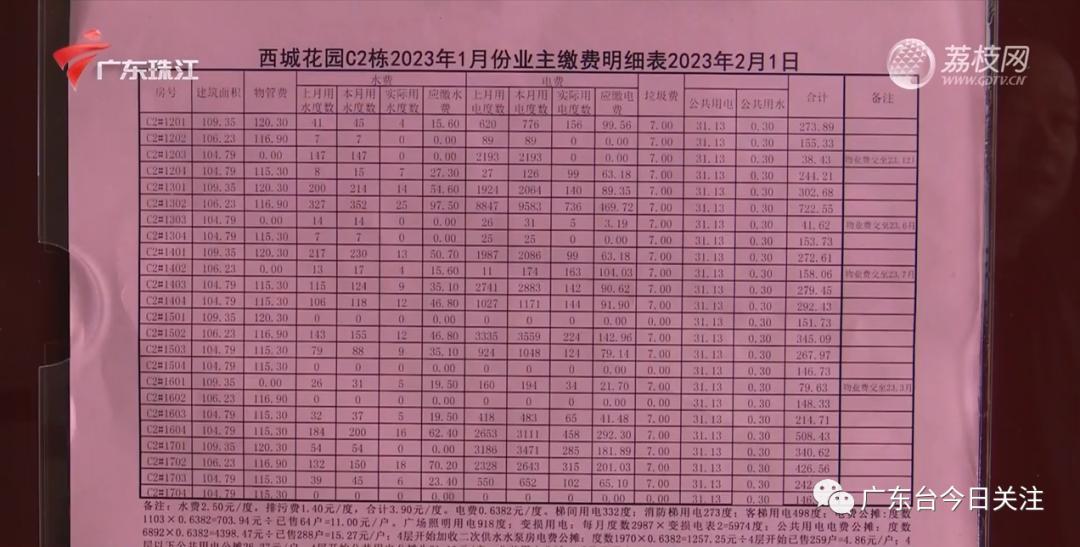 广东珠江
荔枝网
WWW.GDTV.CN
西城花园C2栋2023年1月份业主缴费明细表2023年2月1日
房号 建筑面积 物管费 水费 电费 垃圾费 公共用电 公共用水 合计 备注
上月用水度数 本月用水度数 实际用水度数 应缴水费 上月用电度数 本月用电度数 实际用电度数 应缴电费
C2#1201 109.35 120.30 41 45 4 15.60 620 776 156 99.56 7.00 31.13 0.30 273.89
C2#1202 106.23 116.90 7 7 0 0.00 89 89 0 0.00 7.00 31.13 0.30 155.33
C2#1203 104.79 0.00 147 147 0 0.00 2193 2193 0 0.00 7.00 31.13 0.30 38.43 物业费交至23.12月
C2#1204 104.79 115.30 8 15 7 27.30 27 126 99 63.18 7.00 31.13 0.30 244.21
C2#1301 109.35 120.30 200 214 14 54.60 1924 2064 140 89.35 7.00 31.13 0.30 302.68
C2#1302 106.23 116.90 327 352 25 97.50 8847 9583 736 469.72 7.00 31.13 0.30 722.55
C2#1303 104.79 0.00 14 14 0 0.00 26 31 5 3.19 7.00 31.13 0.30 41.62 物业费交至23.6月
C2#1304 104.79 115.30 7 7 0 0.00 25 25 0 0.00 7.00 31.13 0.30 153.73
C2#1401 109.35 120.30 217 230 13 50.70 1987 2086 99 63.18 7.00 31.13 0.30 272.61
C2#1402 106.23 0.00 13 17 4 15.60 11 174 163 104.03 7.00 31.13 0.30 158.06 物业费交至23.7月
C2#1403 104.79 115.30 115 124 9 35.10 2741 2883 142 90.62 7.00 31.13 0.30 279.45
C2#1404 104.79 115.30 106 118 12 46.80 1027 1171 144 91.90 7.00 31.13 0.30 292.43
C2#1501 109.35 120.30 0 0 0 0.00 0 0 0 0.00 0.00 31.13 0.30 151.73
C2#1502 106.23 116.90 143 155 12 46.80 3335 3559 224 142.96 7.00 31.13 0.30 345.09
C2#1503 104.79 115.30 79 88 9 35.10 924 1048 124 79.14 7.00 31.13 0.30 267.97
C2#1504 104.79 115.30 0 0 0 0.00 0 0 0 0.00 0.00 31.13 0.30 146.73
C2#1601 109.35 0.00 26 31 5 19.50 160 194 34 21.70 7.00 31.13 0.30 79.63 物业费交至23.3月
C2#1602 106.23 116.90 0 0 0 0.00 0 0 0 0.00 0.00 31.13 0.30 148.33
C2#1603 104.79 115.30 32 37 5 19.50 418 483 65 41.48 7.00 31.13 0.30 214.71
C2#1604 104.79 115.30 184 200 16 62.40 2653 3111 458 292.30 7.00 31.13 0.30 508.43
C2#1701 109.35 120.30 54 54 0 0.00 3186 3471 285 181.89 7.00 31.13 0.30 340.62
C2#1702 106.23 116.90 132 150 18 70.20 2328 2643 315 201.03 7.00 31.13 0.30 426.56
C2#1703 104.79 115.30 39 45 6 23.40 550 652 102 65.10 7.00 31.13 0.30
C2#1704 104.79 115.30 0 0 0 0.00 0 0 0 0.00 0.00 31.13 0.30
备注：水费2.50元/度，排污费1.40元/度，合计3.90元/度。电费0.6382元/度。梯间用电332度；消防梯用电273度；客梯用电498度；电费公摊：度数
1103×0.6382=703.94元÷已售64户=11.00元/户。广场照明用电918度；变损用电：每月度数2987×变损电表2=5974度；公共用电电费公摊：度数
6892×0.6382=4398.47元÷已售288户=15.27元/户；4层开始加收二次供水水泵房电费公摊：度数1970×0.6382=1257.25元÷4层开始已售259户=4.86元/户；4
广东台今日关注